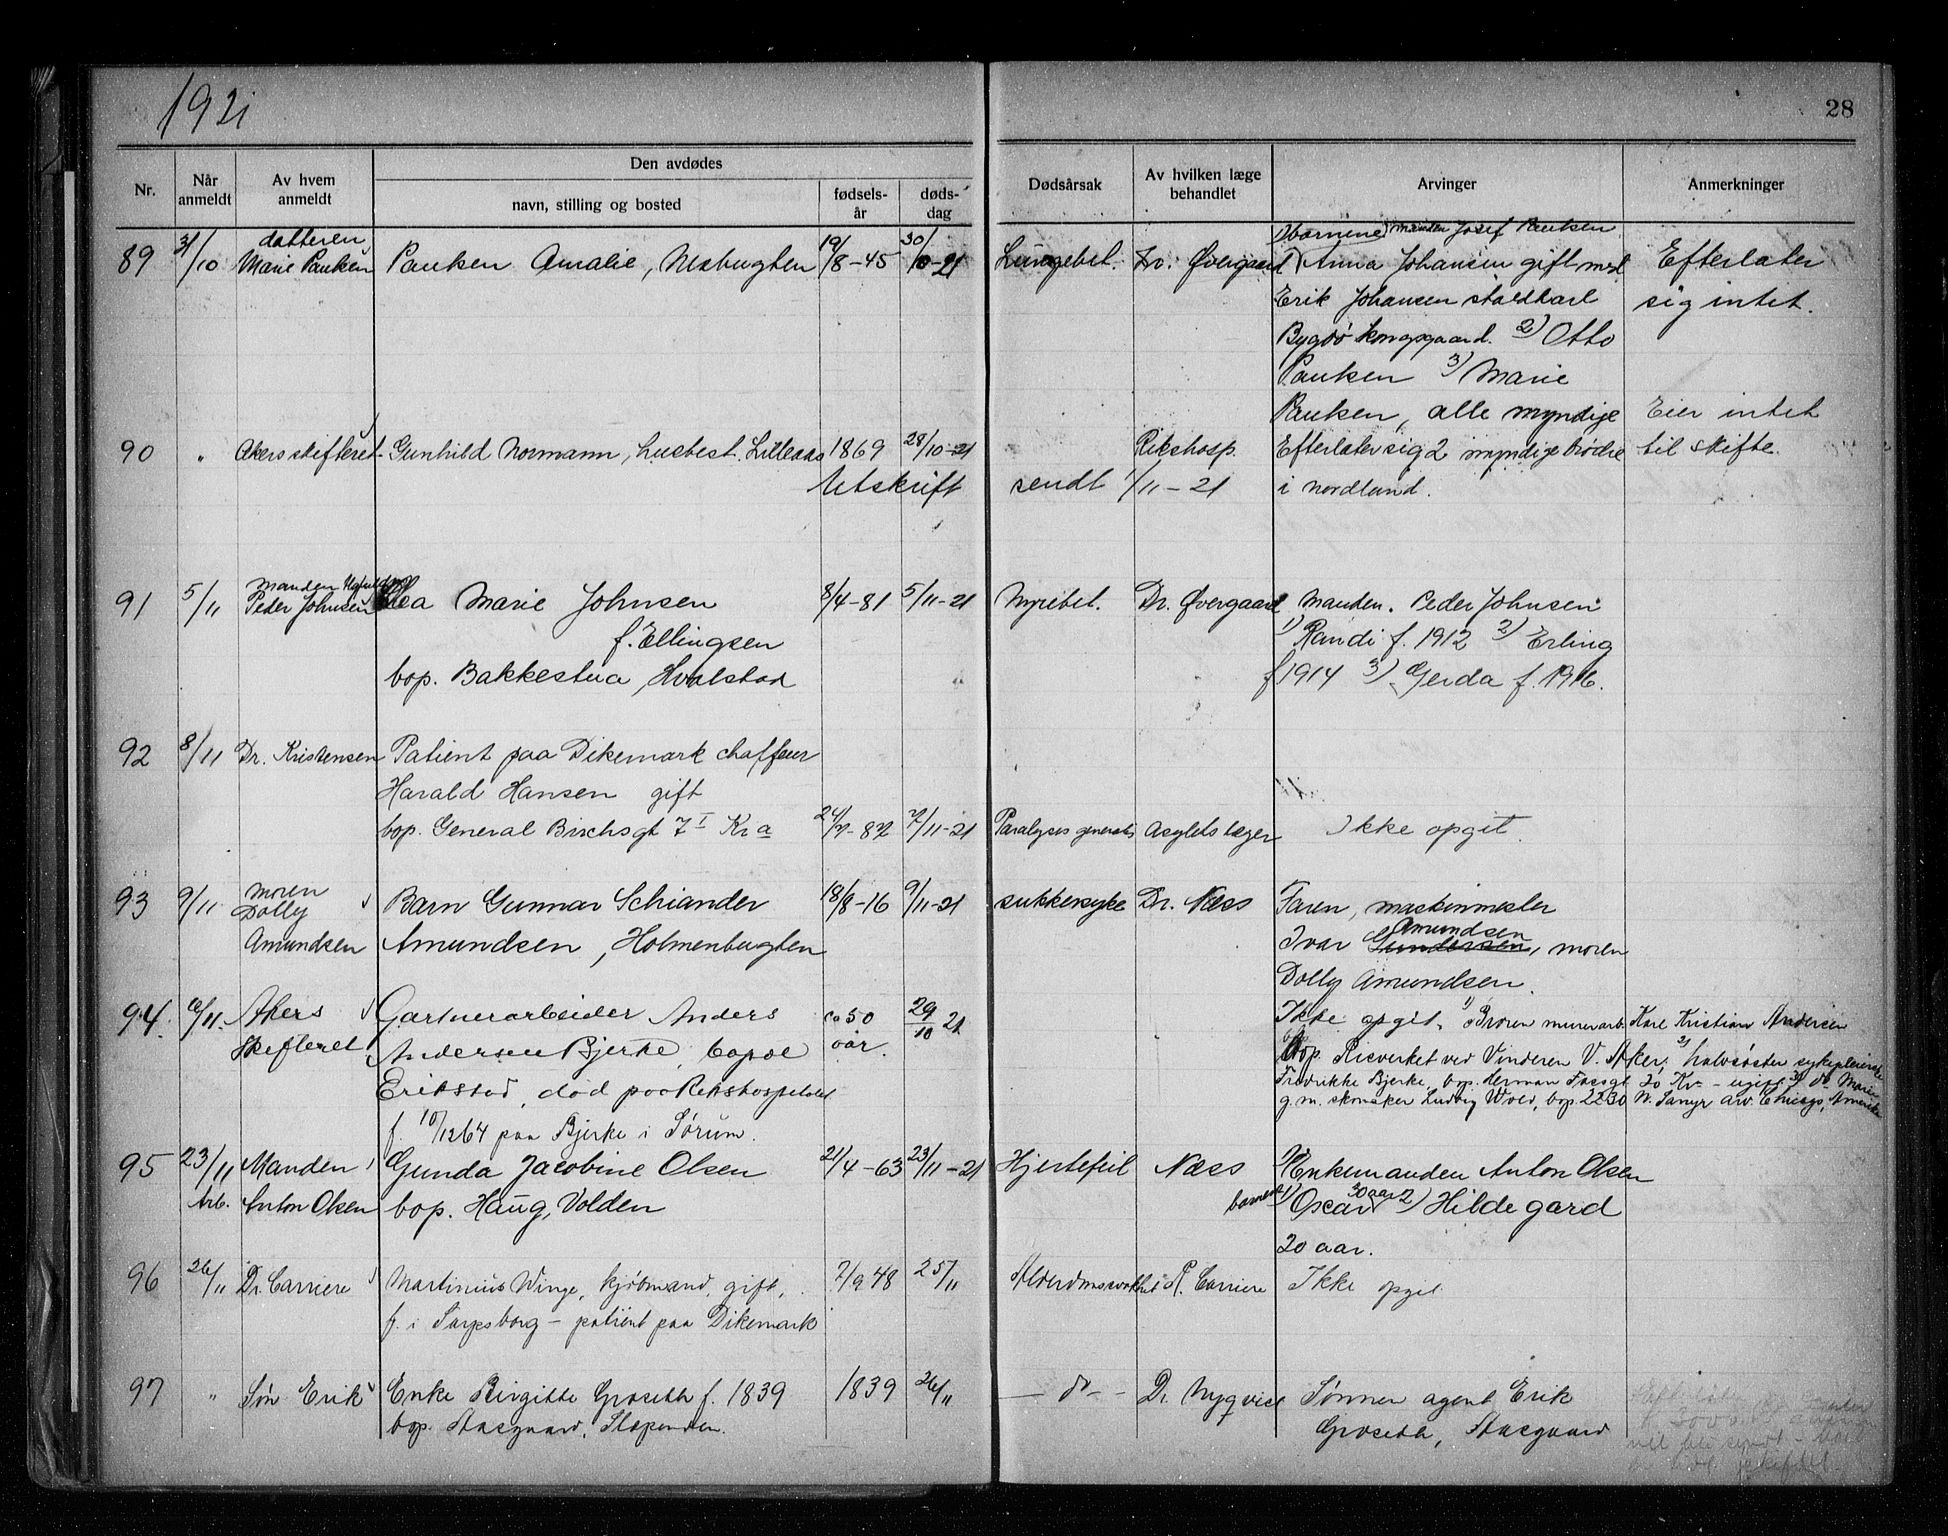 1921
28
Nr.
Når anmeldt
Av hvem anmeldt
Den avdødes
navn, stilling og bosted
fødsels-år
døds-dag
Dødsårsak
Av hvilken læge behandlet
Arvinger
Anmerkninger
89 31/10 datteren Marie Pauken
Pauken Amalie, Nesbugten 19/8-45 30/10-21
Lungebet. Dr. Øvergaard
barnene manden Josef Pauken
1) Anna Johansen gift med
Erik Johansen staldkarl
Bygdø kongsgaard. 2) Otto
Pauken 3) Marie
Pauken, alle myndige
Efterlater
sig intet.
90 " Akers skifteret Gunhild Normann, husbest. Lilleaas 1869 28/10-21
Rikshosp.
Efterlater sig 2 myndige brødre
i Nordland.
Eier intet
til skifte.
Utskrift sendt 1/11-21
91 5/11 manden Peder Johnsen
Marie Johnsen 8/4-81 5/11-21
f. Ellingsen
bop. Bakkestua, Hvalstad
Nyrebet. Dr. Øvergaard
Manden. Peder Johnsen
1) Randi f. 1912 2) Erling
f 1914 3) Gerda f. 1916.
92 8/11 Dr. Kristensen
Patient paa Dikemark chaffeur
Harald Hansen gift
bop. General Birchsgt 7 I Kr a 7/11-21
Paralyses generalis Asylets læger Ikke opgit.
93 9/11 moren Dolly Amundsen
Barn Gunnar Schiander 18/8-16 9/11-21
Amundsen, Holmenbugten
sukkersyke Dr. Næss
Faren, maskinmester
Ivar Gundersen Amundsen, moren
Dolly Amundsen.
94. /11. Akers Skifteret
Gartnerarbeider Anders ca 50 aar. 29/10 21
Andersen Bjerke, bopæl
Erikstad, død paa Rikshospitalet
f. 10/12 64 paa Bjerke i Sørum.
Ikke opgit. 1) Broren murerarb. Karl Kristian Andersen
bop. Risverket ved Vinderen V. Aker, 2) halvsøster sykepleierske
Fredrikke Bjerke, bop. Herman Fossgt 20 Kr. – ugift 3) do Marie
g. m. skomaker Ludvig Wold, bop. 2230 N. av. Chicago, Amerika
95 23/11 Manden Arb. Anton Olsen
Gunda Jacobine Olsen 21/4-63 23/11-21
bop. Haug, Volden
Hjertefeil Næss
Enkemanden Anton Olsen
barnene 1) Oscar 30 aar 2) Hildegard
20 aar.
96 26/11 Dr. Carriere
Martinius Winge, kjøbmand, gift, 7/9 48 25/11
f. i Sarpsborg – patient paa Dikemark
Carriere Ikke opgit
97 " Søn Erik
Enke Birgitte Groseth f. 1839 1839 26/11
bop. Aasgaard, Slependen.
– do – Dr. Nyqvist
Sønnen agent Erik
Groseth, Aasgaard